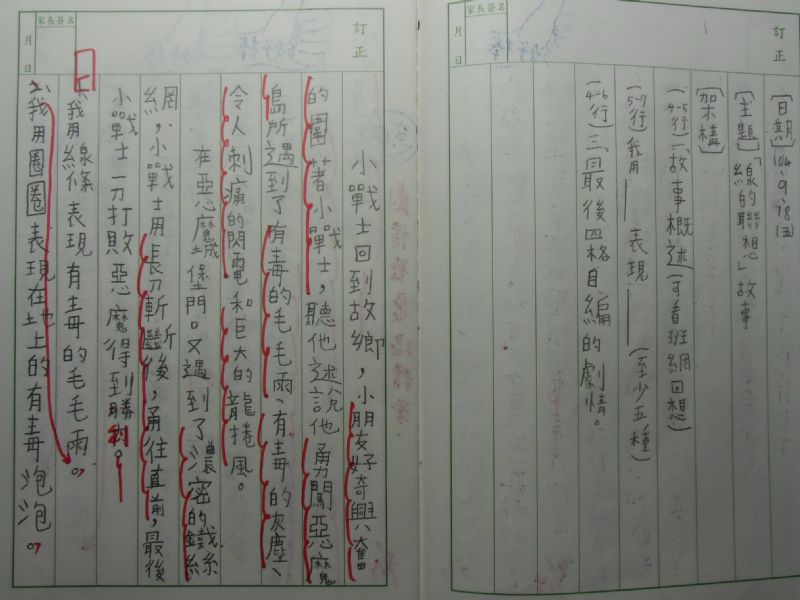 訂正
家長簽名
月 日
〔日期〕104、9、18(五)
〔主題〕「線的聯想」故事
〔架構〕
(4-5行)一、故事概述(可看班網回想)
(5-7行)我用——表現——(至少五種)
(4-6行)三、最後四格自編的劇情。
訂正
家長簽名
月 日
小戰士回到故鄉,小朋友好奇興奮
的圍著小戰士,聽他述說他勇闖惡魔
島所遇到了有毒的毛毛雨、有毒的灰塵、
令人刺痛的閃電和巨大的龍捲風。
在惡魔城堡門。又遇到了濃密的鐵絲
網,小戰士用長刀斬斷後,勇往直前,最後
小戰士一刀打敗惡魔得到勝利。
1、我用線條表現有毒的毛毛雨。
2、我用圈圈表現在地上的有毒泡泡。